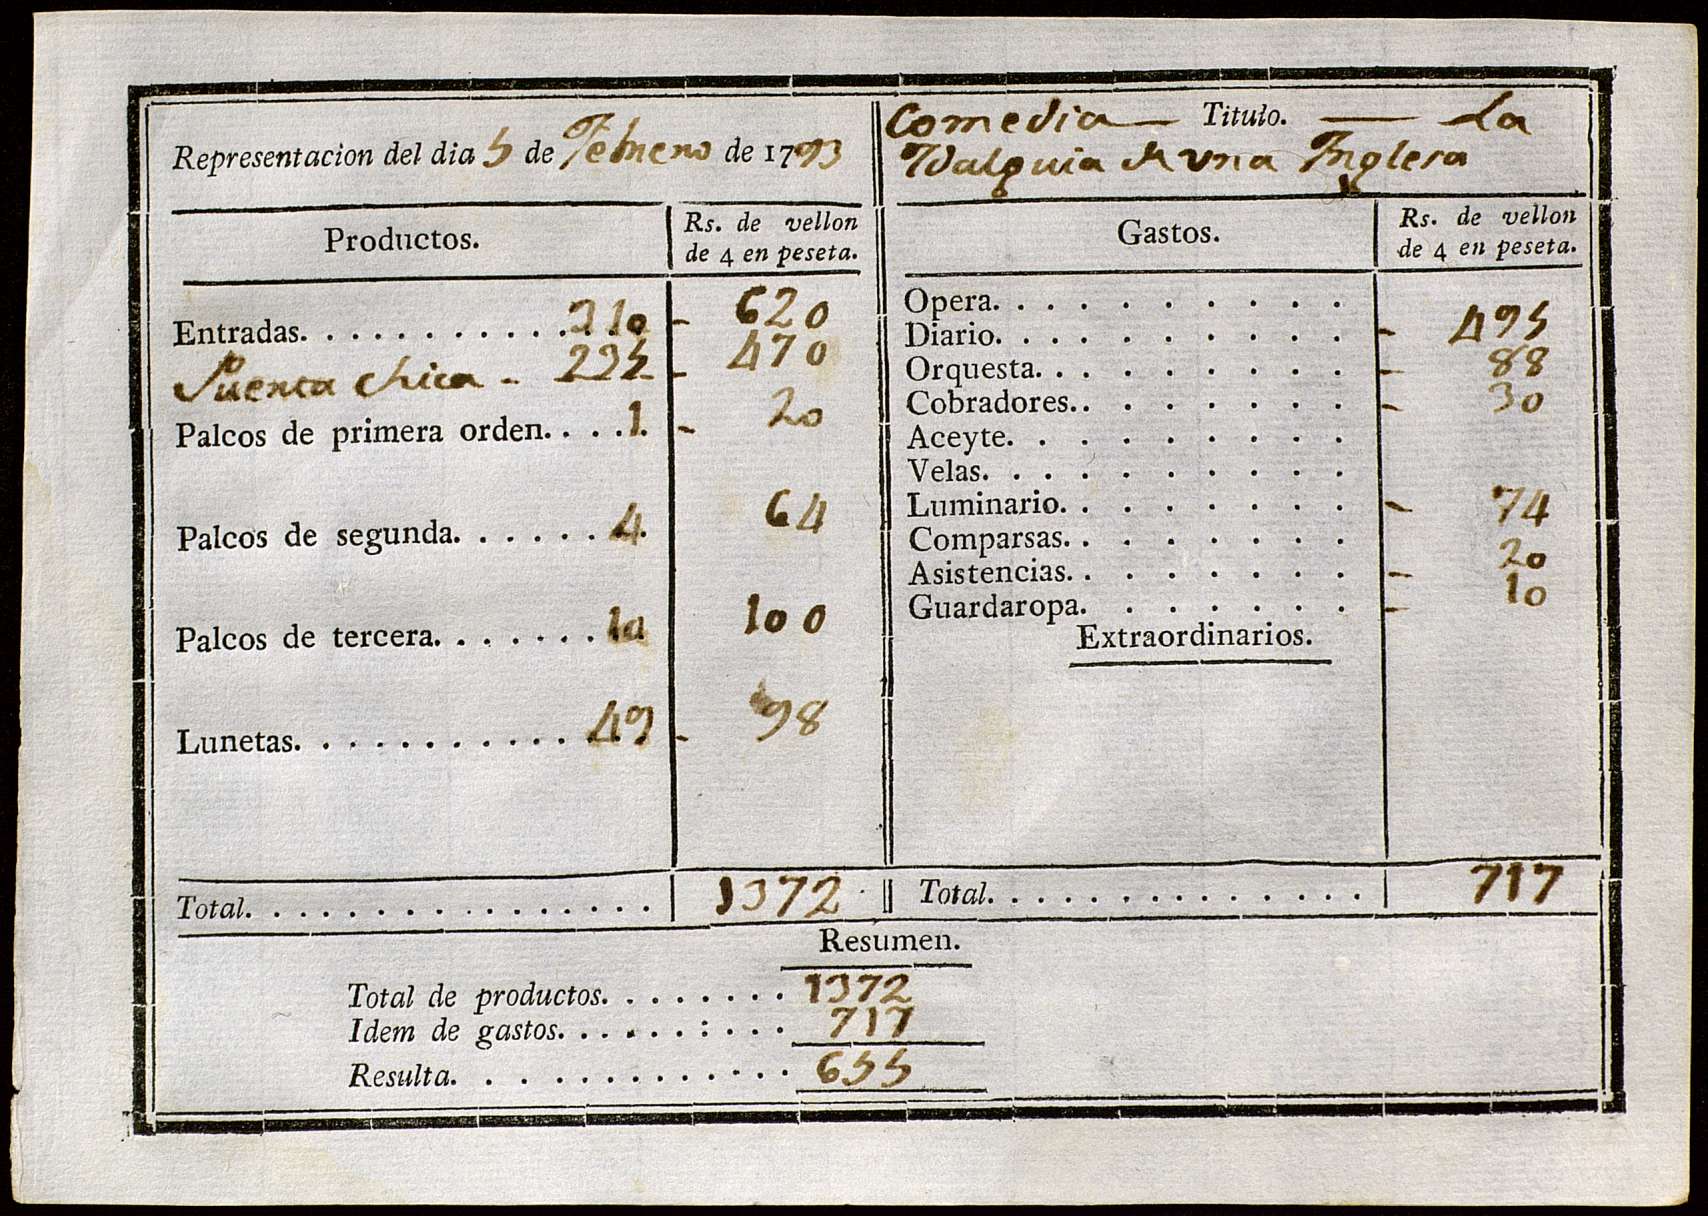 Representacion del dia 5 de Febrero de 1793
Comedia — Titulo. — La
Ydalguia de vna Ynglesa
Productos.
Rs. de vellon
de 4 en peseta.
Entradas. . . . . . . . . . . . 310 - 620
Puerta chica - 235 - 470
Palcos de primera orden. . . . 1 - 20
Palcos de segunda. . . . . . . 4 64
Palcos de tercera. . . . . . . 10 100
Lunetas. . . . . . . . . . . . 49 - 98
Total. . . . . . . . . . . . . . . . 1372
Gastos.
Rs. de vellon
de 4 en peseta.
Opera. . . . . . . . . . .
Diario. . . . . . . . . . . - 495
Orquesta. . . . . . . . . . - 88
Cobradores. . . . . . . . . - 30
Aceyte. . . . . . . . . . .
Velas. . . . . . . . . . .
Luminario. . . . . . . . . - 74
Comparsas. . . . . . . . .
Asistencias. . . . . . . . - 20
Guardaropa. . . . . . . - 10
Extraordinarios.
Total. . . . . . . . . . . . . . . 717
Resumen.
Total de productos. . . . . . . . 1372
Idem de gastos. . . . . . : . . . 717
Resulta. . . . . . . . . . . . . 655